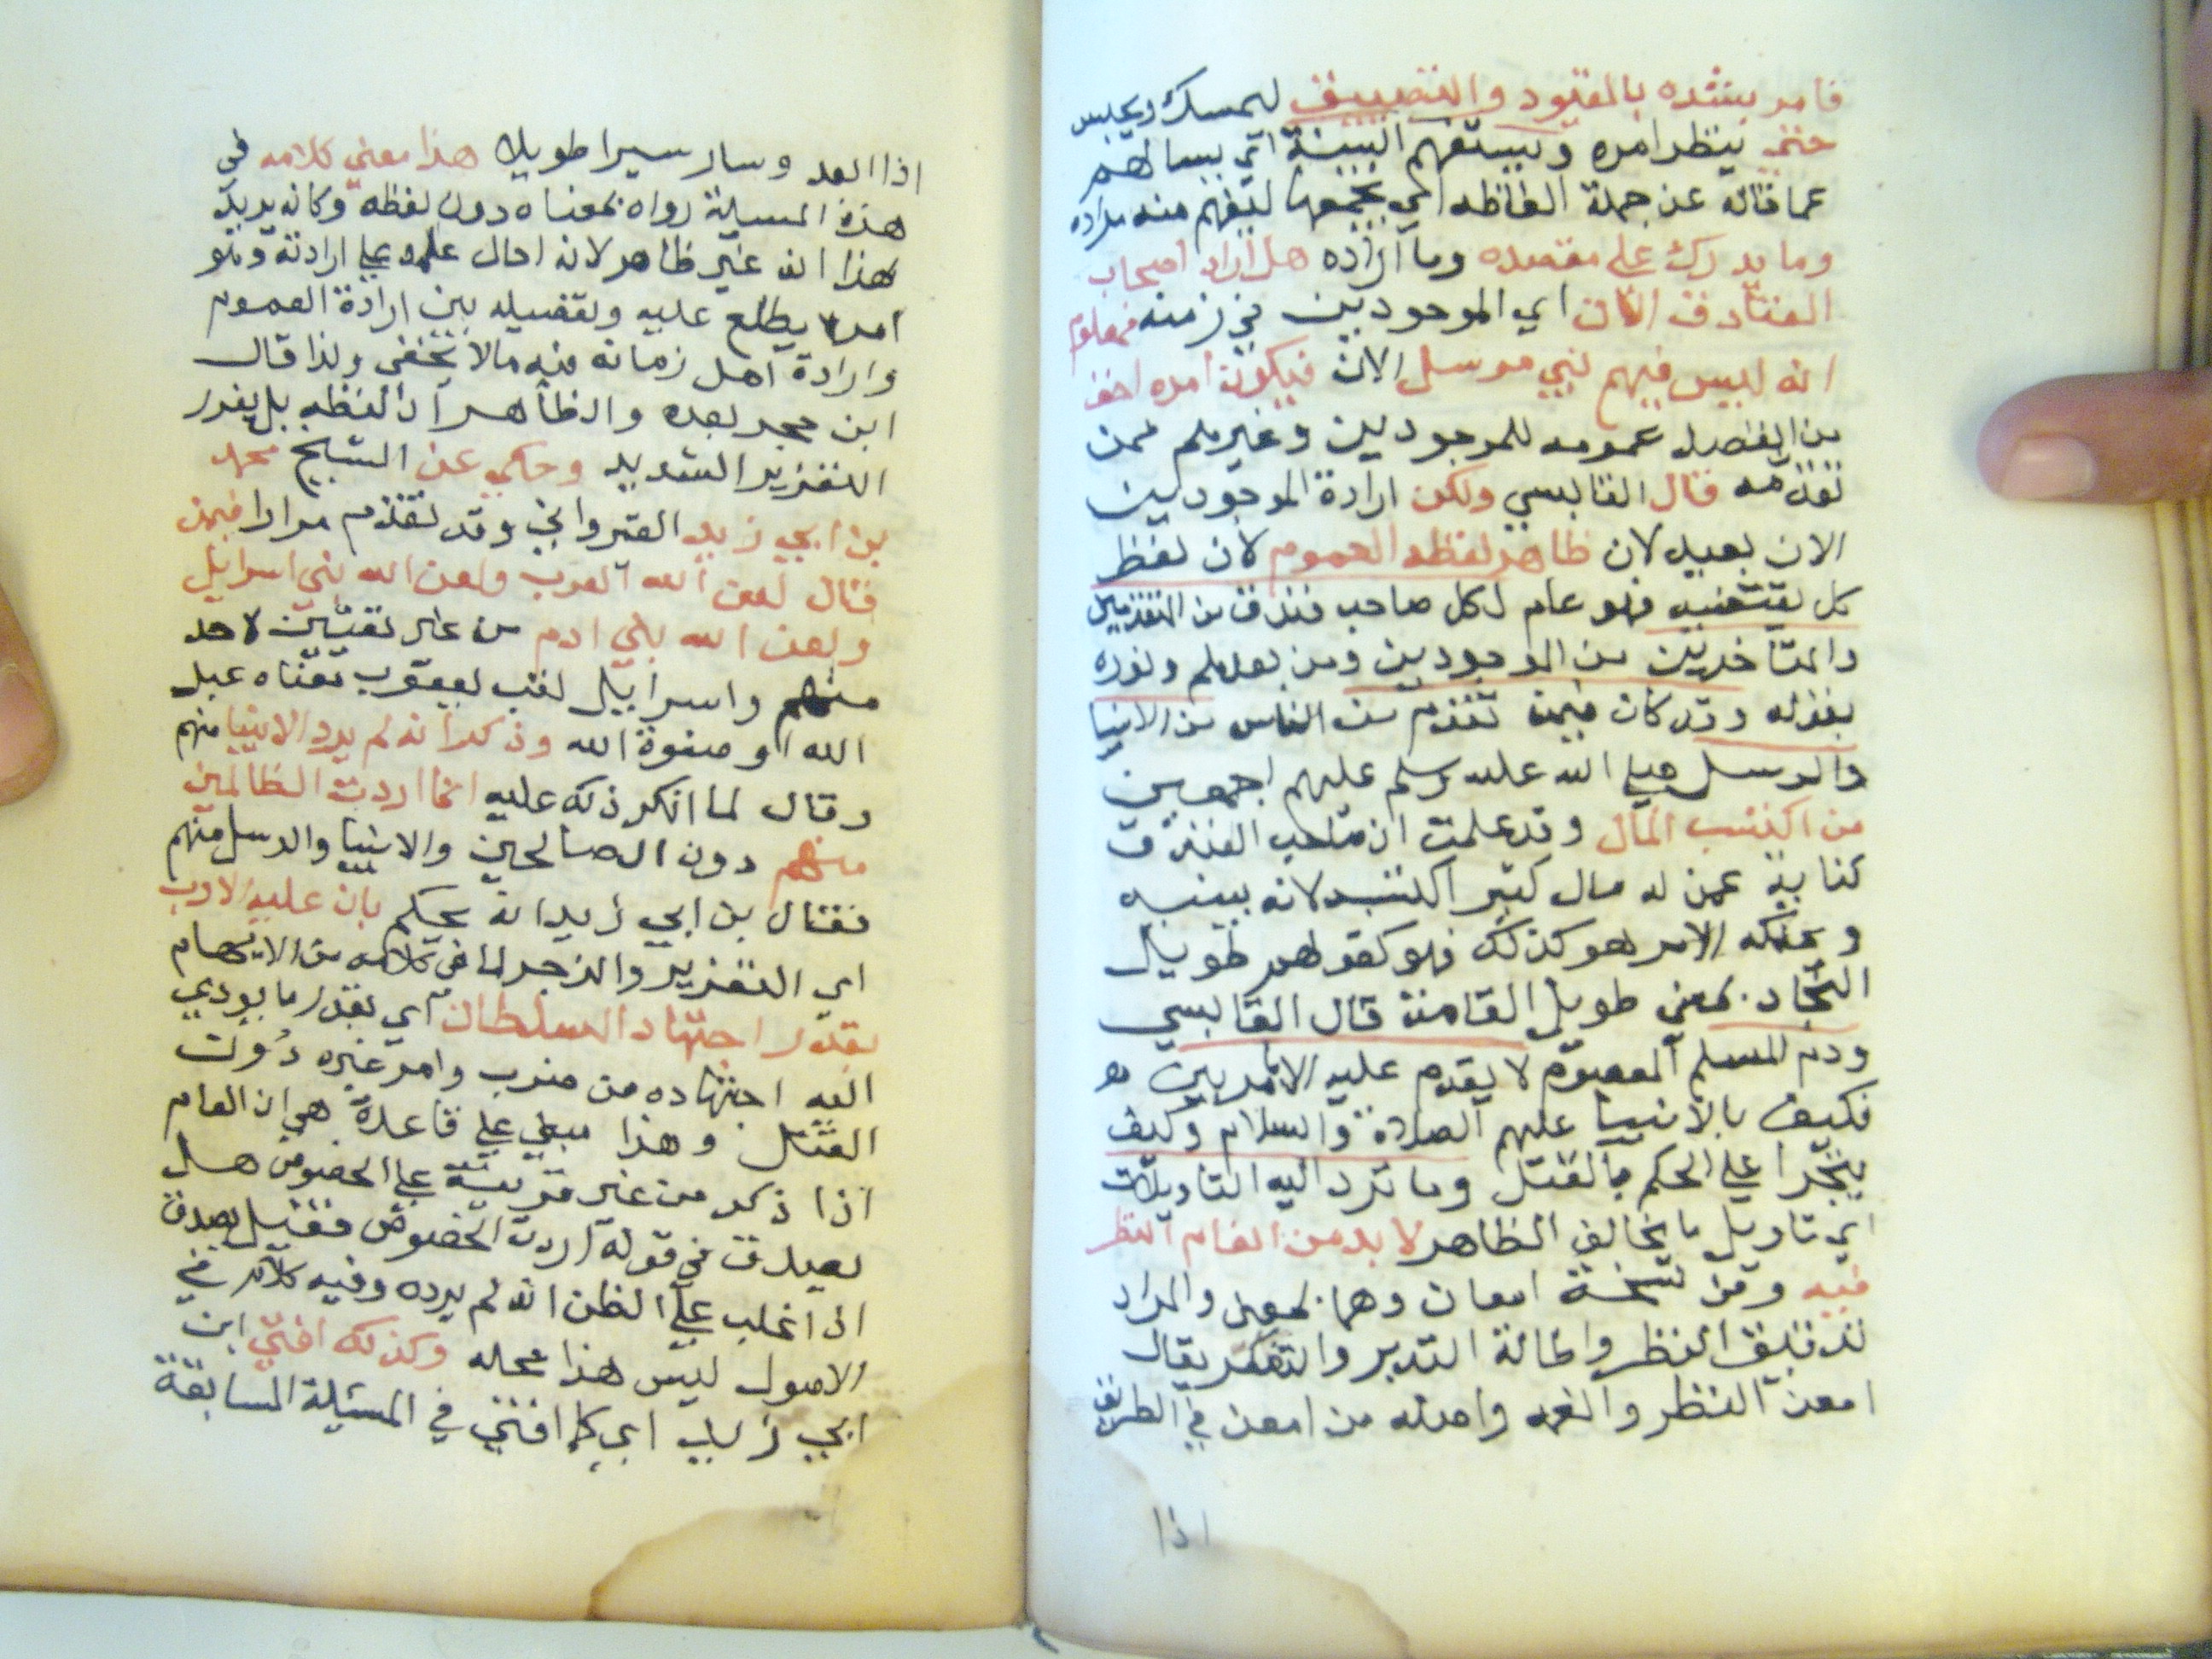 فامر بشده بالقيود والتضييق ليمسك ويحبس
حتي ينظر امره ويستفهم البينة اي يسالهم
عما قاله عن جملة الفاظه اي جميعها ليفهم منه مراده
وما يدرك علي مقصده وما اراده هل اراد اصحاب
الفنادق الان اي الموجودين في زمنه فمعلوم
انه ليس فيهم نبي مرسل الان فيكون امره اخف
من الفصل عمومه للموجودين وغيرهم ممن
تقدمه قال القابسي ولكن ارادة الموجودين
الان بعيد لان ظاهر لفظه العموم لان لفظ
كل يقتضيه فهو عام لكل صاحب فندق من المتقدمين
والمتاخرين من الموجودين ومن بعدهم وقوره
بقوله وقد كان فيمن تقدم من الناس من الانبيا
والرسل صلي الله عليه وسلم عليهم اجمعين
من اكتسب المال وقد علمت ان صاحب الفندق
كناية عمن له مال كثير اكتسبه لانه يبنيه
ويملكه الامر هو كذلك فهو كقولهم طويل
النجاد بمعني طويل القامة قال القابسي
ودم المسلم المعصوم لا يقدم عليه الا بامر بين
فكيف بالانبيا عليهم الصلاة والسلام وكيف
يتجرا علي الحكم بالقتل وما ترد اليه التاويلات
اي تاويل ما يخالف الظاهر لا بد من انعام النظر
فيه وفي نسخة امعان وهما بمعني والمراد
تدقيق النظر واطالة التدبر والتفكر يقال
امعن النظر والفهم واصله من امعن في الطريق
اذا
اذا ابعد وسار سيرا طويلا هذا معني كلامه في
هذه المسيلة رواه بمعناه دون لفظه وكانه يريد
بهذا انه غير ظاهر لانه احال علمه علي ارادته وهو
امر لا يطلع عليه وتفصيله بين ارادة العموم
وارادة اهل زمانه فيه مالا يخفي ولذا قال
ابن حجر بعده والظاهر ان لفظه بل يعزر
التعزير الشديد وحكي عن الشيخ محمد
بن ابي زيد القيرواني وقد تقدم مرارا فيمن
قال لعن الله العرب ولعن الله بني اسرايل
ولعن الله بني ادم من غير تعيين لاحد
منهم واسرابيل لقب ليعقوب معناه عبد
الله او صفوة الله وذكر انه لم يرد الانبيا منهم
وقال لما انكر ذلك عليه انما اردت الظالمين
منهم دون الصالحين والانبيا والرسل منهم
فقال بن ابي زيد انه يحكم بان عليه الادب
اي التعزير والزجر لما في كلامه من الايهام
بقدر اجتهاد السلطان اي بقدر ما يودي
اليه اجتهاده من ضرب وامر غيره دون
القتل وهذا مبني علي قاعدة هي ان العام
اذا ذكر من غير قرينة علي الخصوص هل
يصدق في قوله اردت الخصوص فقيل يصدق
اذا غلب علي الظن انه لم يرده وفيه كلام في
الاصول ليس هذا محله وكذلك افتي ابن
ابي زيد اي كما افتي في المسئلة السابقة